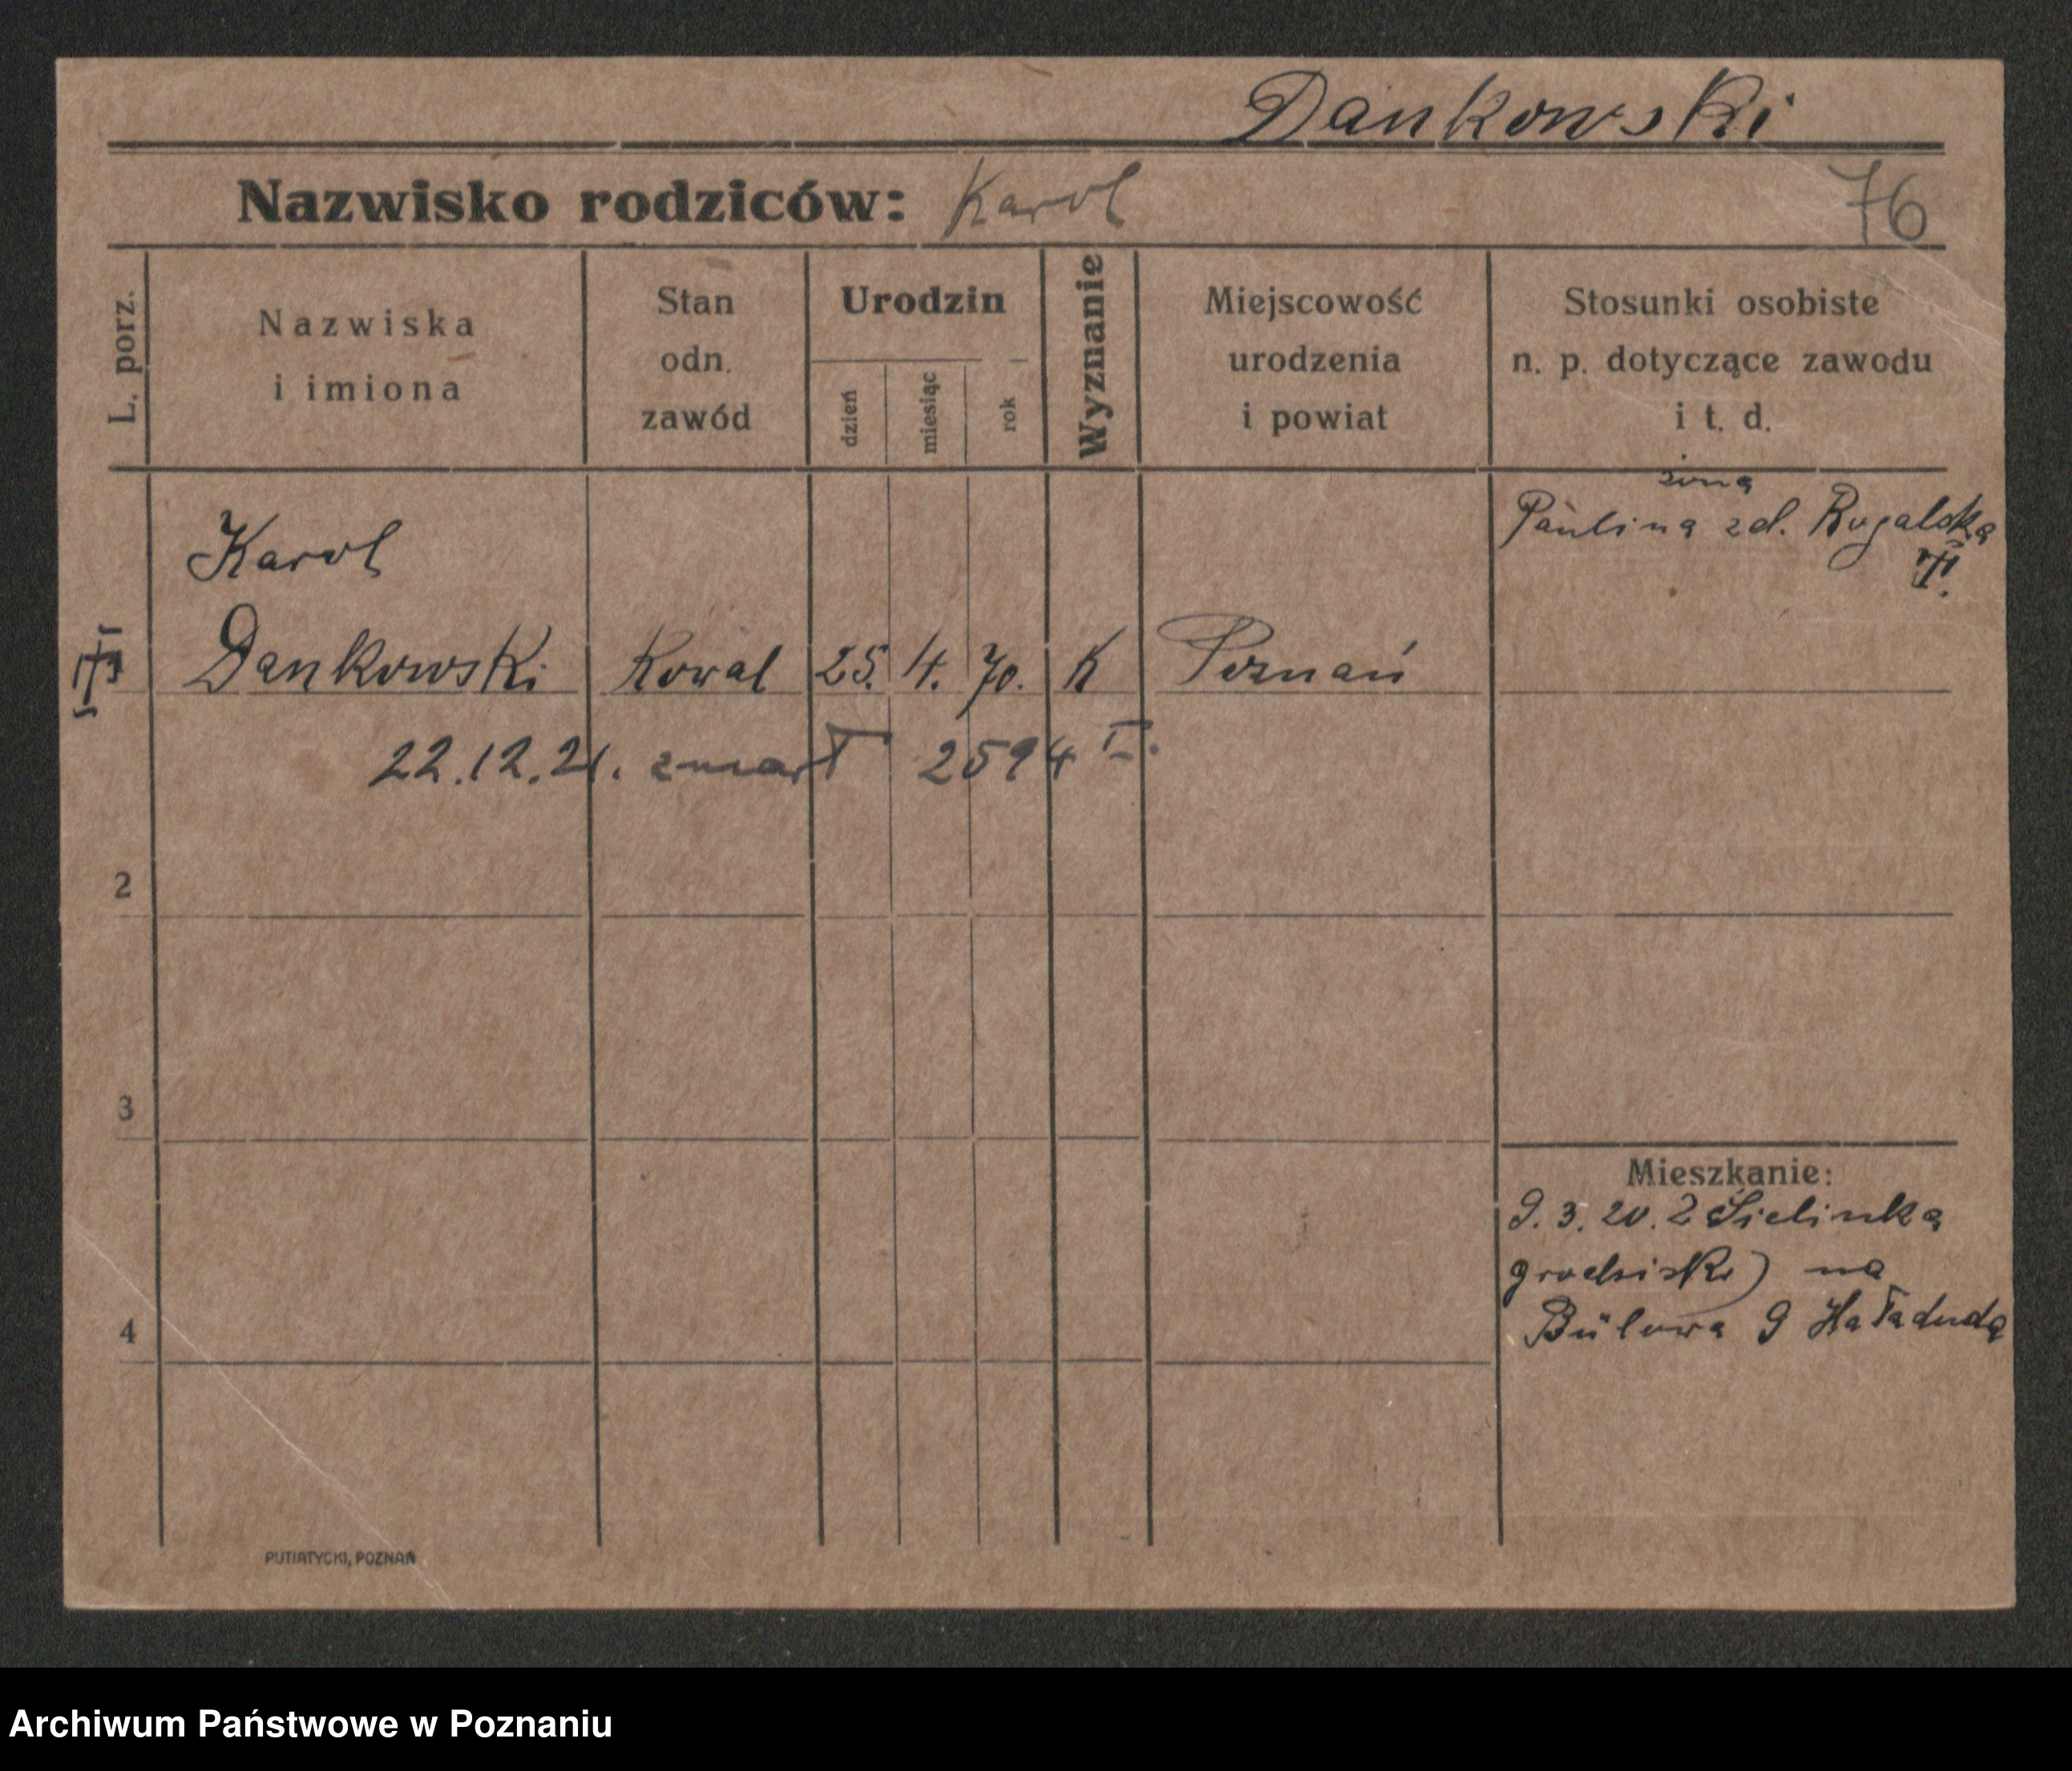 Dankowski
Nazwisko rodziców: Karol 76
L. porz.
Nazwiska
i imiona
Stan
odn.
zawód
Urodzin
dzień
miesiąc
rok
Wyznanie
Miejscowość
urodzenia
i powiat
Stosunki osobiste
n. p. dotyczące zawodu
i t. d.
żona
Paulina zd. Rogalska
Karol
Dankowski Kowal 25. 4. 70. K Poznań
22.12.21. zmarł 2594
2
3
Mieszkanie:
9. 3. 20. Z Sielinka
grodziski) na
Bülowa 9 Haładuda
4
PUTIATYCKI, POZNAŃ
Archiwum Państwowe w Poznaniu